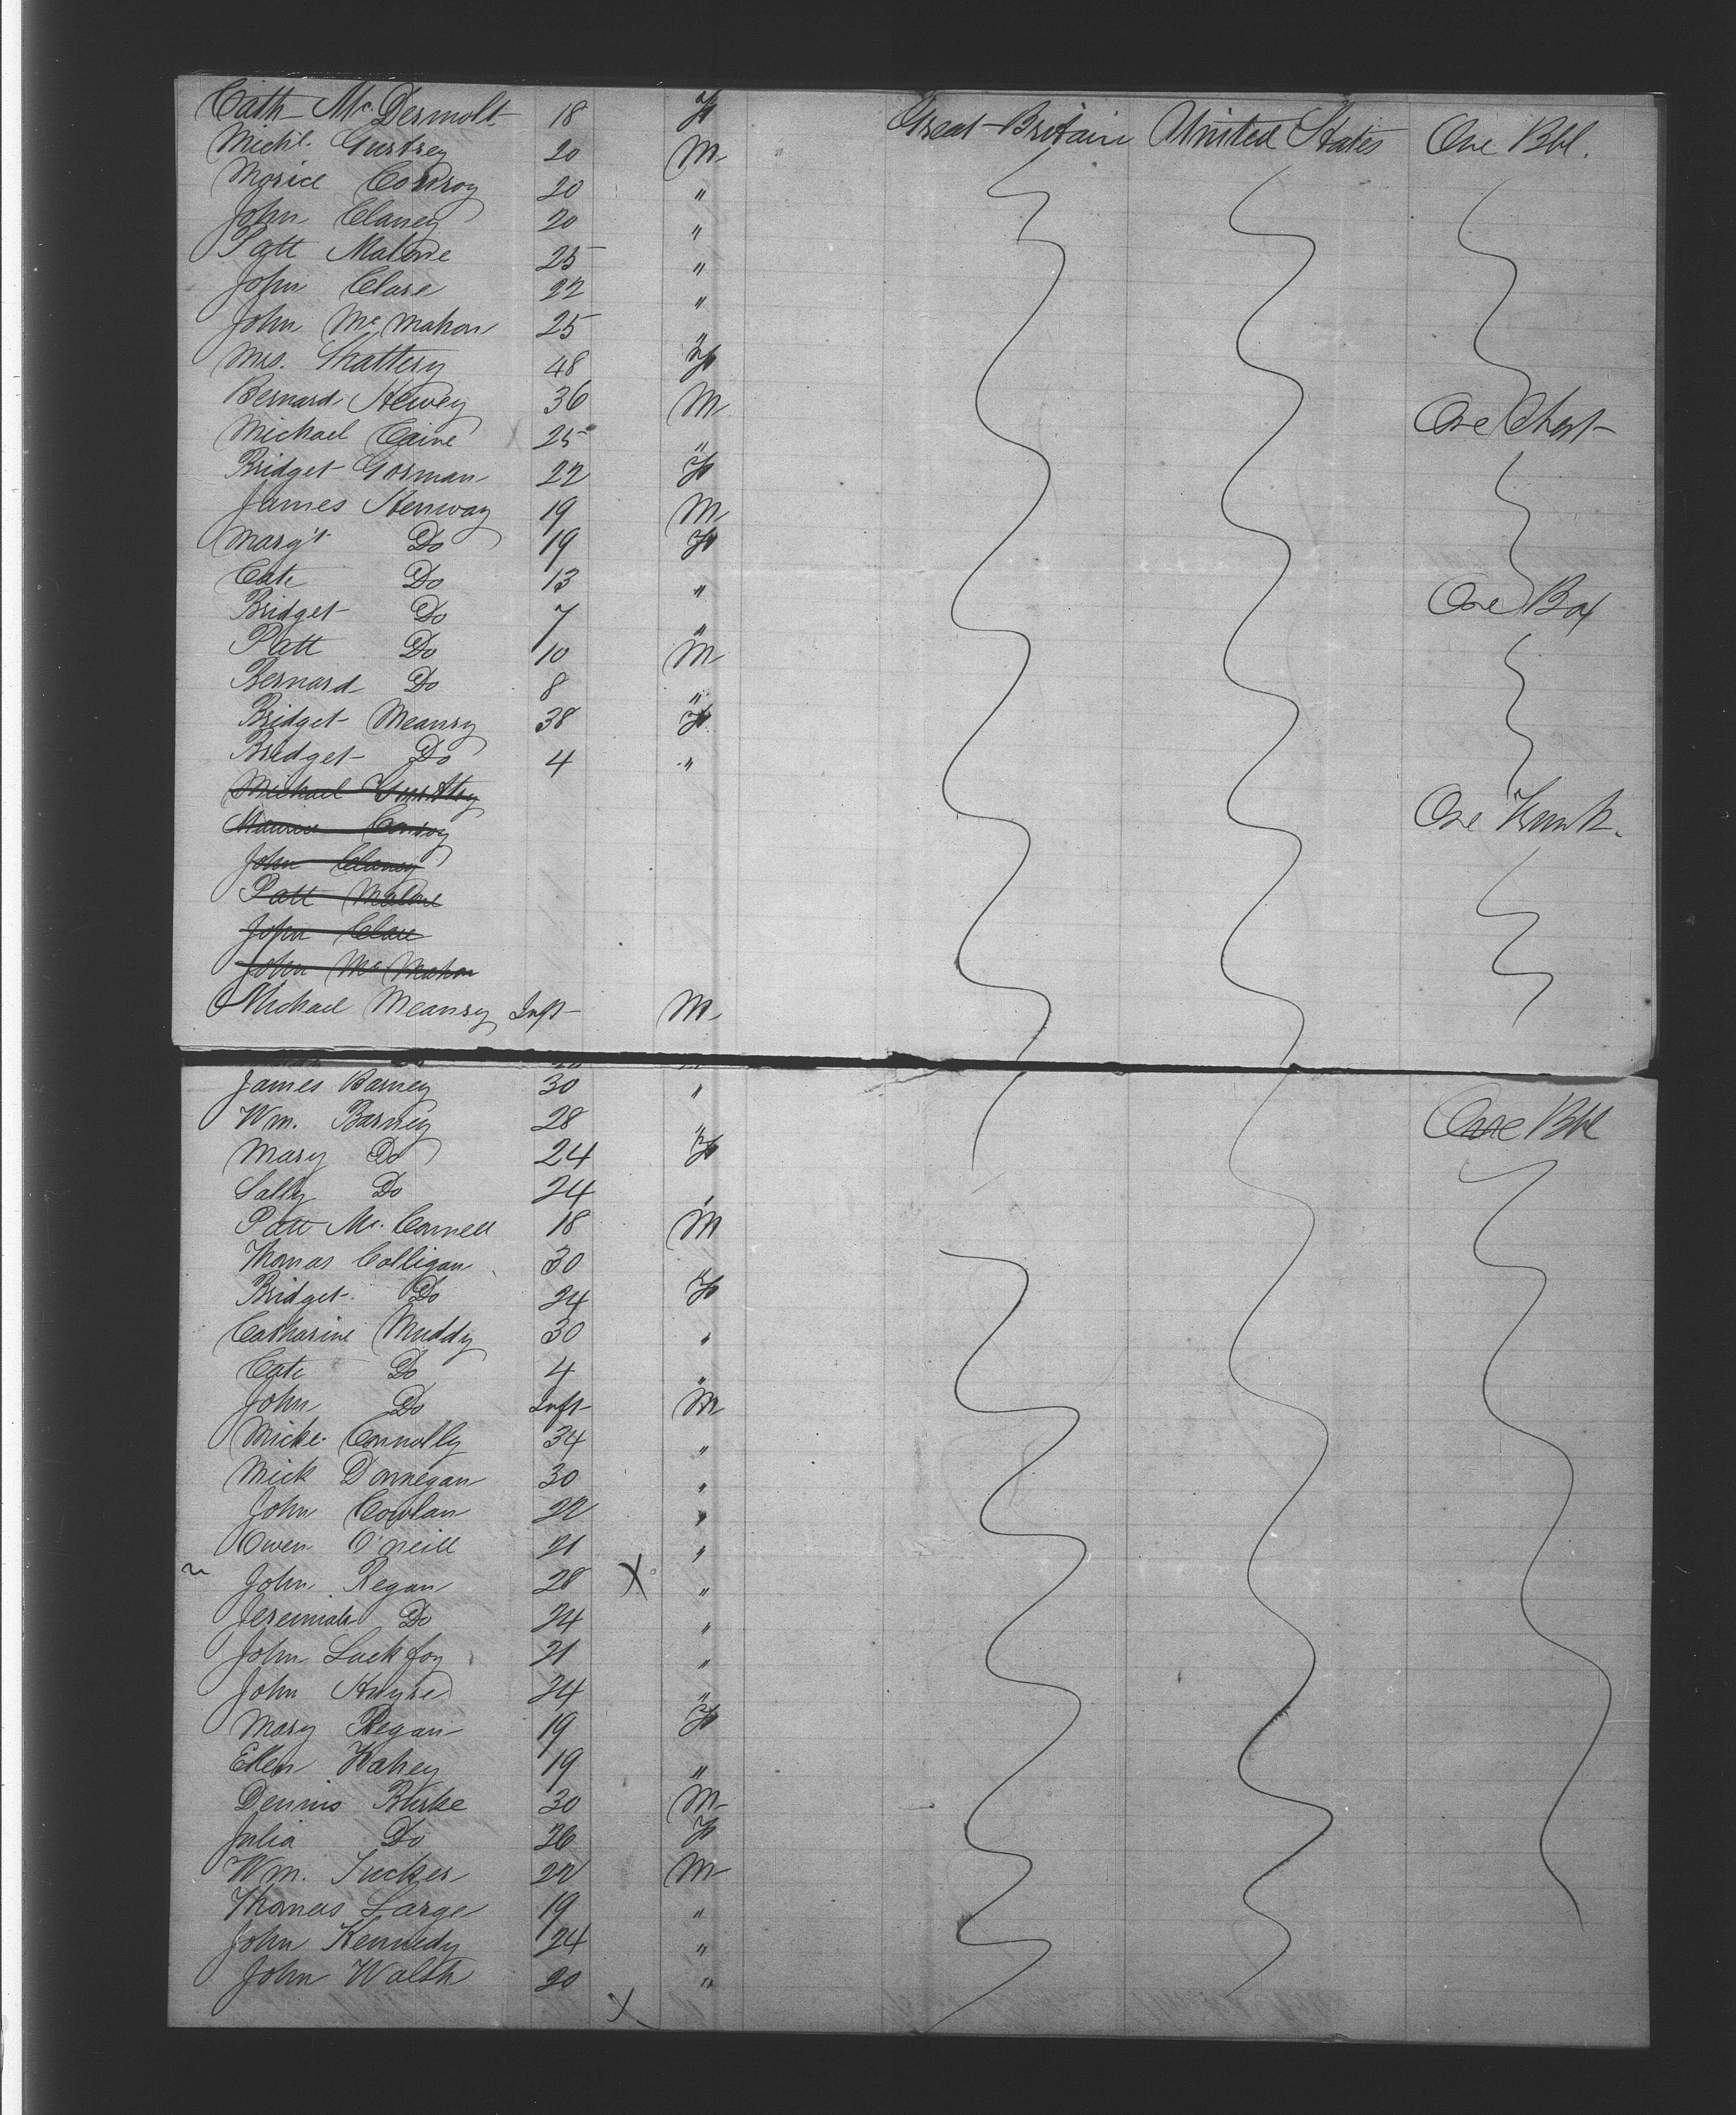 Cath Mc. Dermott 18 F Great Britain United States One Bbl.
Mich'l. Gurtrey 20 M
Morice Conroy 20 "
John Claney 20 "
Patt Malone 25 "
John Clare 22 "
John Mc Mahon 25 "
Mrs. Shattery 48 F
Bernard Hewey 36 M One Chest
Michael Caine 25 "
Bridget Gorman 22 F
James Henway 19 M
Marg't Do 19 F
Cate Do 13 " One Box
Bridget Do 7 "
Patt Do 10 M
Bernard Do 8 "
Bridget Meansy 38 F
Bridget Do 4 "
Michael One Trunk.
Maurice Conroy
John Claney
Patt Malone
John Clare
John Mc Mahon
Michael Meansy Inft M
James Barney 30 " One Bbl
Wm. Barney 28 "
Mary Do 24 F
Sally Do 24 "
Patt Mc. Connell 18 M
Thomas Colligan 30 "
Bridget Do 24 F
Catharine Muddy 30 "
Cate Do 4 "
John Do Inft M
Micke Connolly 34 "
Mick Donnegan 30 "
John Cowlan 22 "
Owen O'Neill 21 "
John Regan 28 X "
Jeremiah Do 24 "
John Luckfoy 21 "
John 24 "
Mary Regan 19 F
Ellen Kahey 19 "
Dennis Burke 30 M
Julia Do 26 F
Wm. Tucker 22 M
Thomas Large 19 "
John Kennedy 24 "
John Walsh 20 "
X